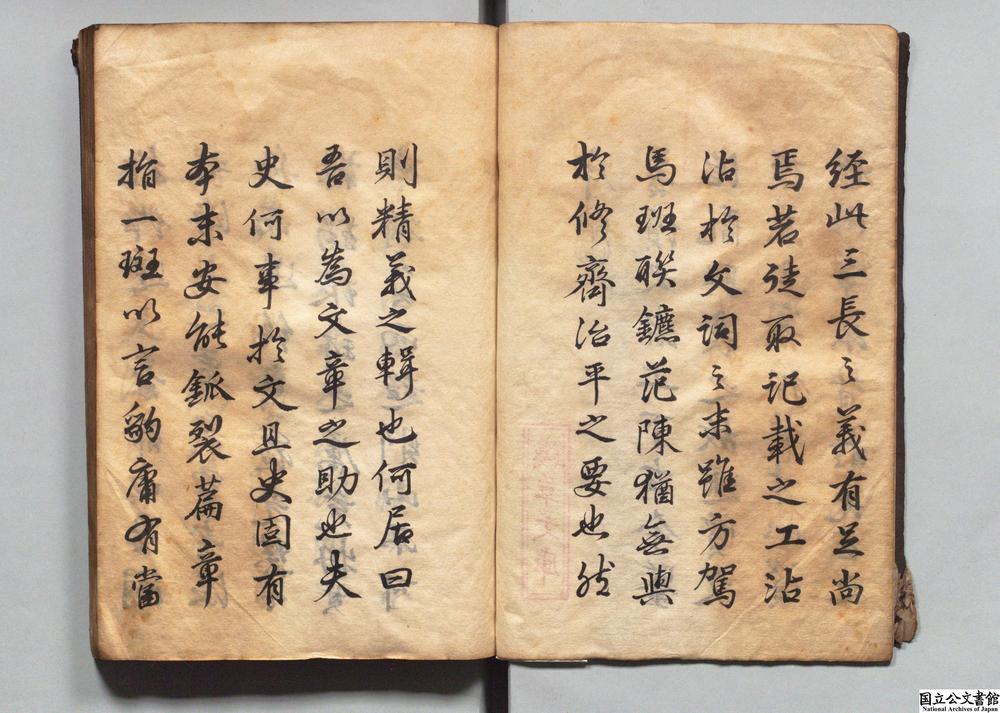 經此三長之義有足尚
焉若徒取記載之工沾
沾於文詞之末雖方駕
馬班聯鑣范陳猶無與
於修齊治平之要也然
則精義之輯也何居曰
吾以為文章之助也夫
史何事於文且史固有
本末安能鈲裂篇章
指一斑以言豹庸有當
国立公文書館
National Archives of Japan